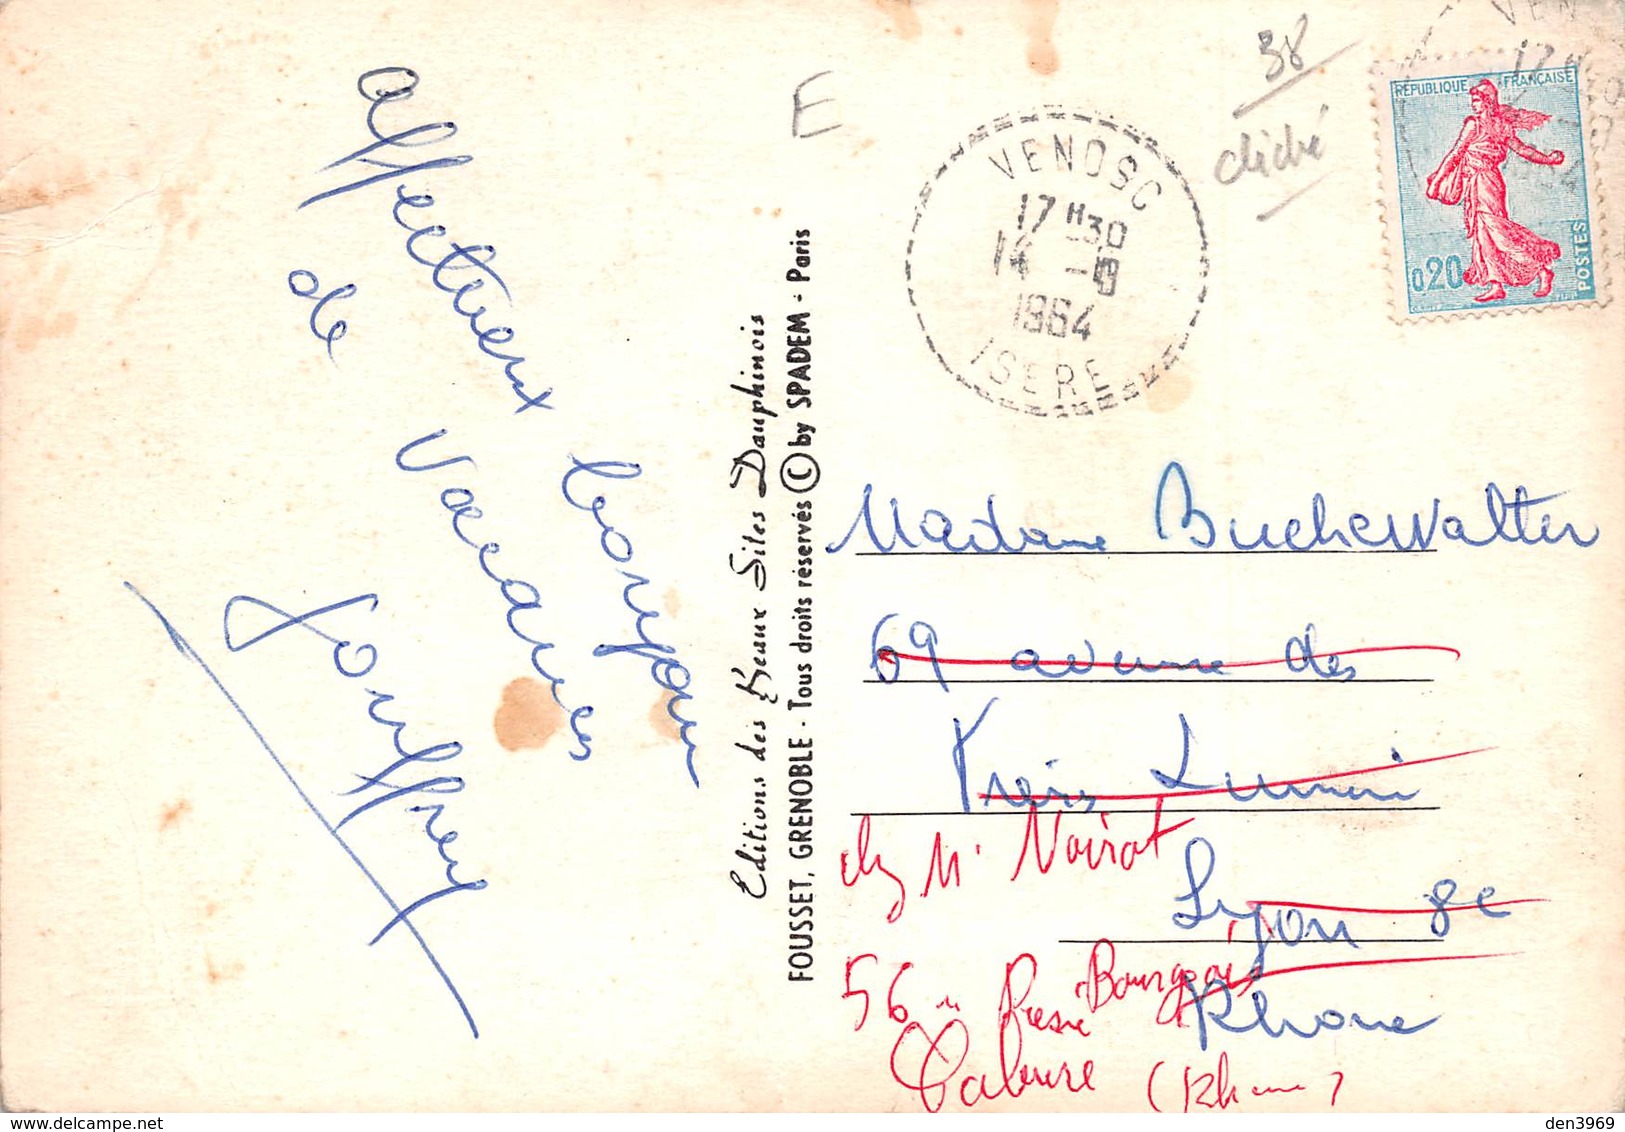 affectueux bonjour
de vacances
Jouffrey
Editions des Beaux Sites Dauphinois
FOUSSET, GRENOBLE - Tous droits réservés © by SPADEM - Paris
E
38
cliché
VENOSC
17 H 30
14 -8
1964
ISERE
VEN
17
REPUBLIQUE FRANÇAISE
0,20
POSTES
Madame Buchewalter
69 avenue des
Frères Lumière
Lyon 8e
Rhone
chez Mr Noirot
56 Bourgeois
Caluire (Rhone)
den3969